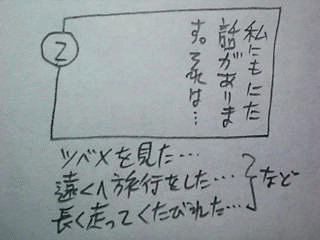 ②
私にもにた
話がありま
す。それは…
ツバメを見た…
遠くへ旅行をした…
長く走ってくたびれた…
など